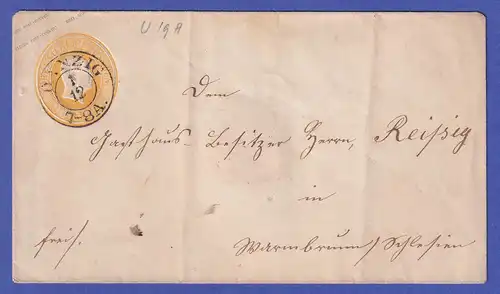 U 19 A
DANZIG
1
12
7-8A.
Dem
Gasthaus-Besitzer Herrn, Reißig
in
frei/.
Warmbrunn/Schlesien